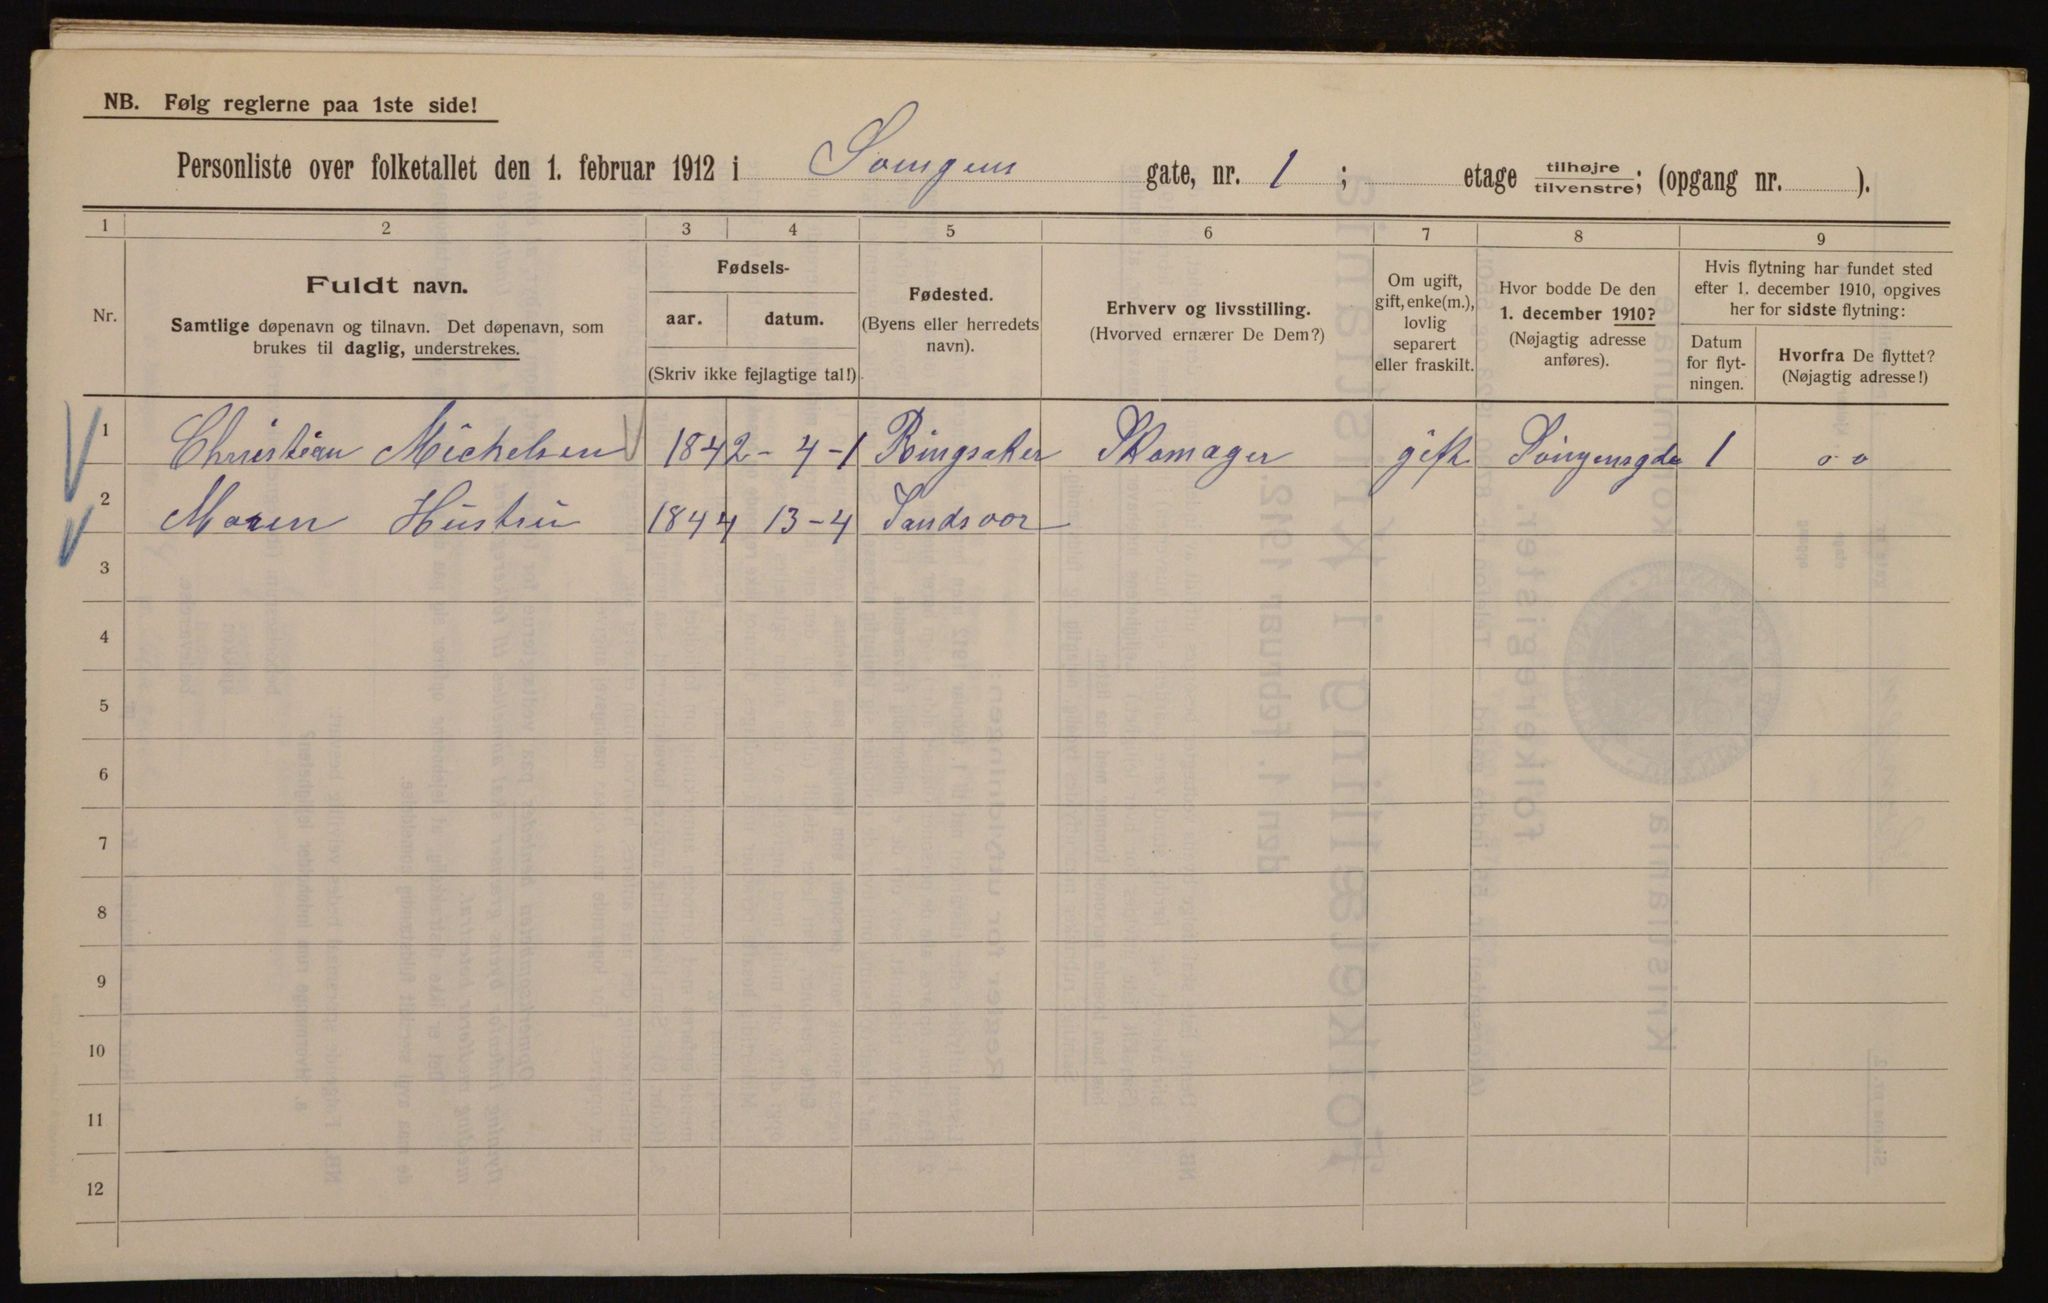 NB. Følg reglerne paa 1ste side!
Personliste over folketallet den 1. februar 1912 i Songens gate, nr. 1 ; etage tilhøjre tilvenstre; (opgang nr. ).
1 2 3 4 5 6 7 8 9
Nr.
Fuldt navn.
Samtlige døpenavn og tilnavn. Det døpenavn, som
brukes til daglig, understrekes.
Fødsels-
aar. datum.
(Skriv ikke fejlagtige tal!)
Fødested.
(Byens eller herredets
navn).
Erhverv og livsstilling.
(Hvorved ernærer De Dem?)
Om ugift,
gift, enke(m.),
lovlig
separert
eller fraskilt.
Hvor bodde De den
1. december 1910?
(Nøjagtig adresse
anføres).
Hvis flytning har fundet sted
efter 1. december 1910, opgives
her for sidste flytning:
Datum
for flyt-
ningen.
Hvorfra De flyttet?
(Nøjagtig adresse!)
1 Christian Michelsen 1842 - 4-1 Ringsaker Skomager gift Songensgda 1
2 Maren Hustru 1844 13-4 Sandsvær
3
4
5
6
7
8
9
10
11
12